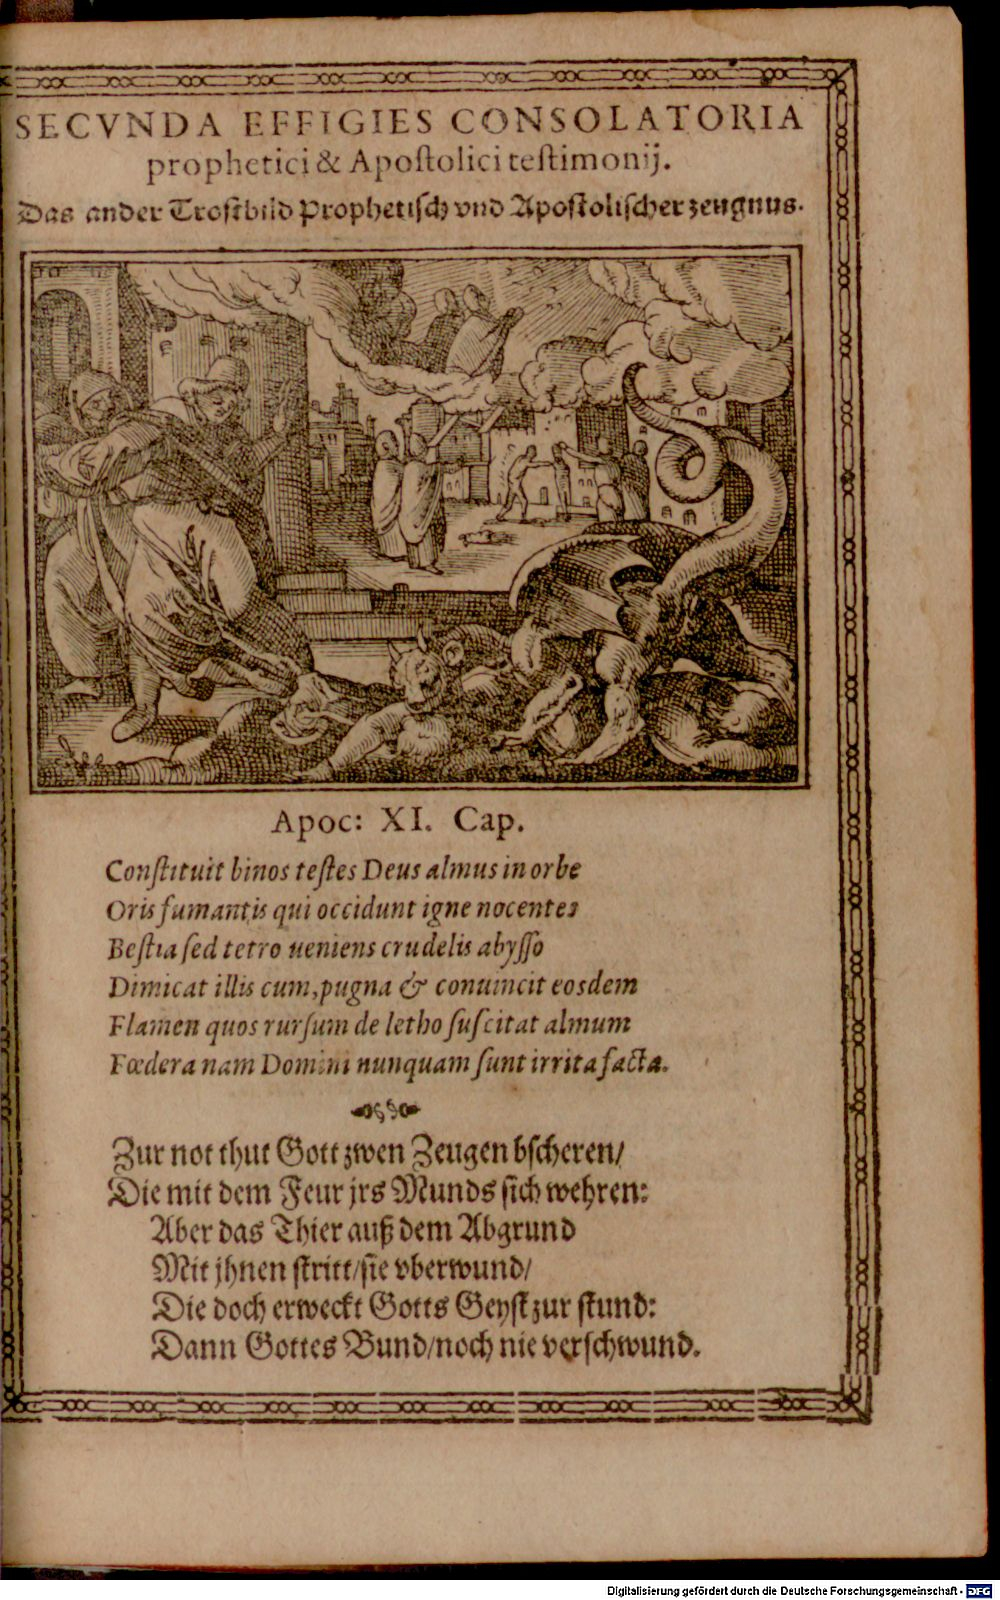 SECVNDA EFFIGIES CONSOLATORIA
prophetici & Apoſtolici teſtimonij.
Das ander Troſtbild Prophetiſch vnd Apoſtoliſcher zeugnus.
Apoc: XI. Cap.
Conſtituit binos teſtes Deus almus in orbe
Oris fumantis qui occidunt igne nocentes
Beſtia ſed tetro ueniens crudelis abyſſo
Dimicat illis cum, pugna & conuincit eosdem
Flamen quos rurſum de letho ſuſcitat almum
Fœdera nam Domini nunquam ſunt irrita facta.
Zur not thut Gott zwen Zeugen bſcheren/
Die mit dem Feur jrs Munds ſich wehren:
Aber das Thier auß dem Abgrund
Mit jhnen ſtritt/ſie vberwund/
Die doch erweckt Gotts Geyſt zur ſtund:
Dann Gottes Bund/noch nie verſchwund.
Digitalisierung gefördert durch die Deutsche Forschungsgemeinschaft - DFG